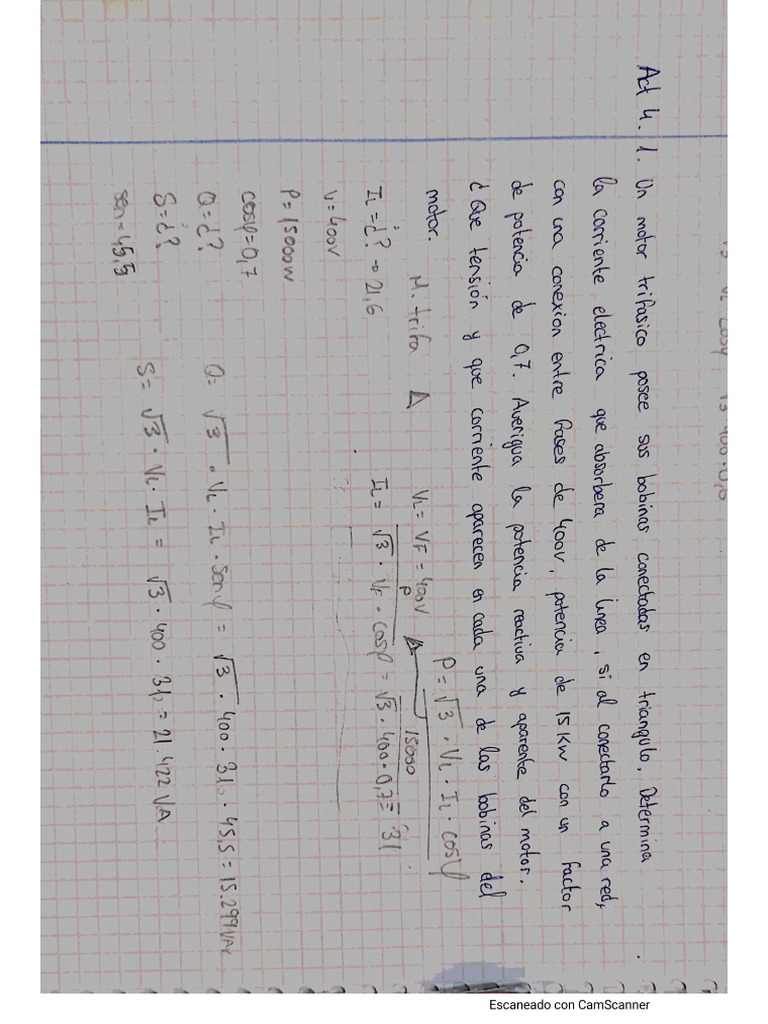 Act 4. 1. Un motor trifasico posee sus bobinas conectadas en triangulo. Determina
la corriente electrica que absorbera de la linea, si al conectarlo a una red,
con una conexion entre fases de 400v, potencia de 15 Kw con un factor
de potencia de 0,7. Averigua la potencia reactiva y aparente del motor.
¿Que tensión y que corriente aparecen en cada una de las bobinas del
motor.
M. trifa Δ
VL = VF = 400V
P = √3 · VL · IL · cosφ
IL = ¿? → 21,6
V = 400V
P = 15000W
cosφ = 0,7
Q = ¿?
S = ¿?
sen = 45,5
P 15000
IL = √3 · VF · cosφ = √3 · 400 · 0,7 = 31
Q = √3 · VL · IL · senφ = √3 · 400 · 31, · 45,5 = 15.299 VAr
S = √3 · VL · IL = √3 · 400 · 31, = 21.422 VA
Escaneado con CamScanner